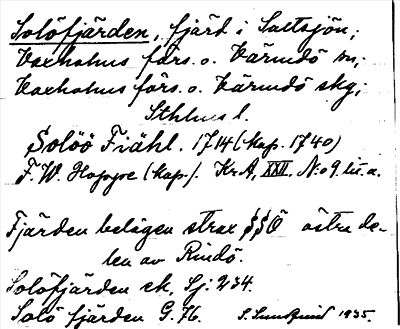 Solöfjärden, fjärd i Saltsjön;
Vaxholms förs. o. Värmdö sn;
Vaxholms förs. o. Värmdö skg;
Sthlms l.
Solöö Fiähl. 1714 (kop. 1740)
F. W. Hoppe (kop.). KrA, XXII. N:o 9. lit. a.
Fjärden belägen strax SSÖ östra de-
len av Rindö.
Solöfjärden ek. Sj. 234.
Solö fjärden G. 76. S. Sundqvist 1935.